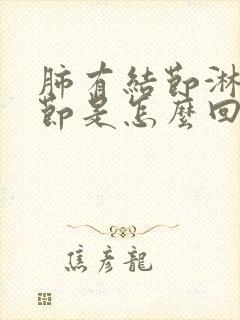 肺有結節淋
節是怎麼回
焦彥龍